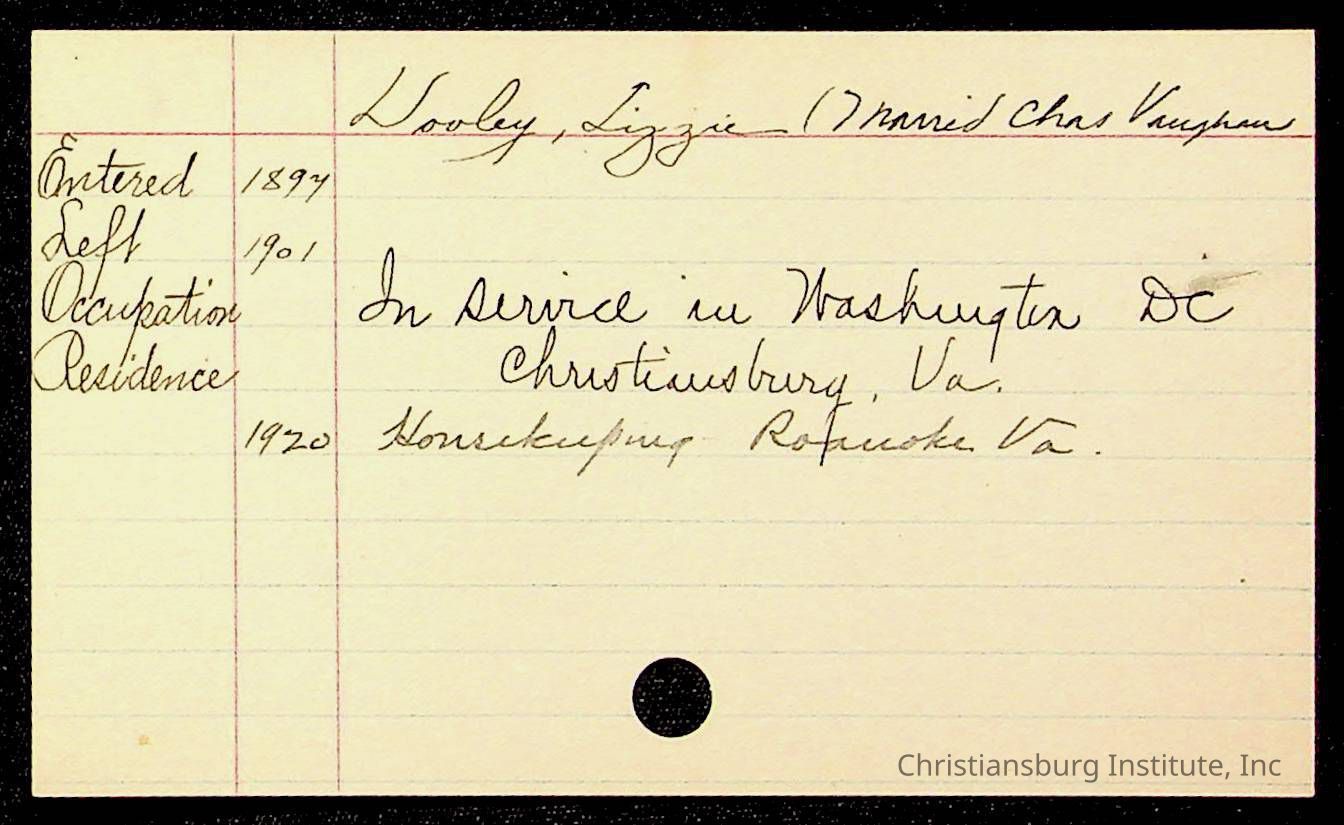 Wooley, Lizzie (Married Chas Vaughan
Entered 1897
Left 1901
Occupation In service in Washington DC
Residence Christiansburg, Va.
1920 Housekeeping Roanoke Va.
Christiansburg Institute, Inc